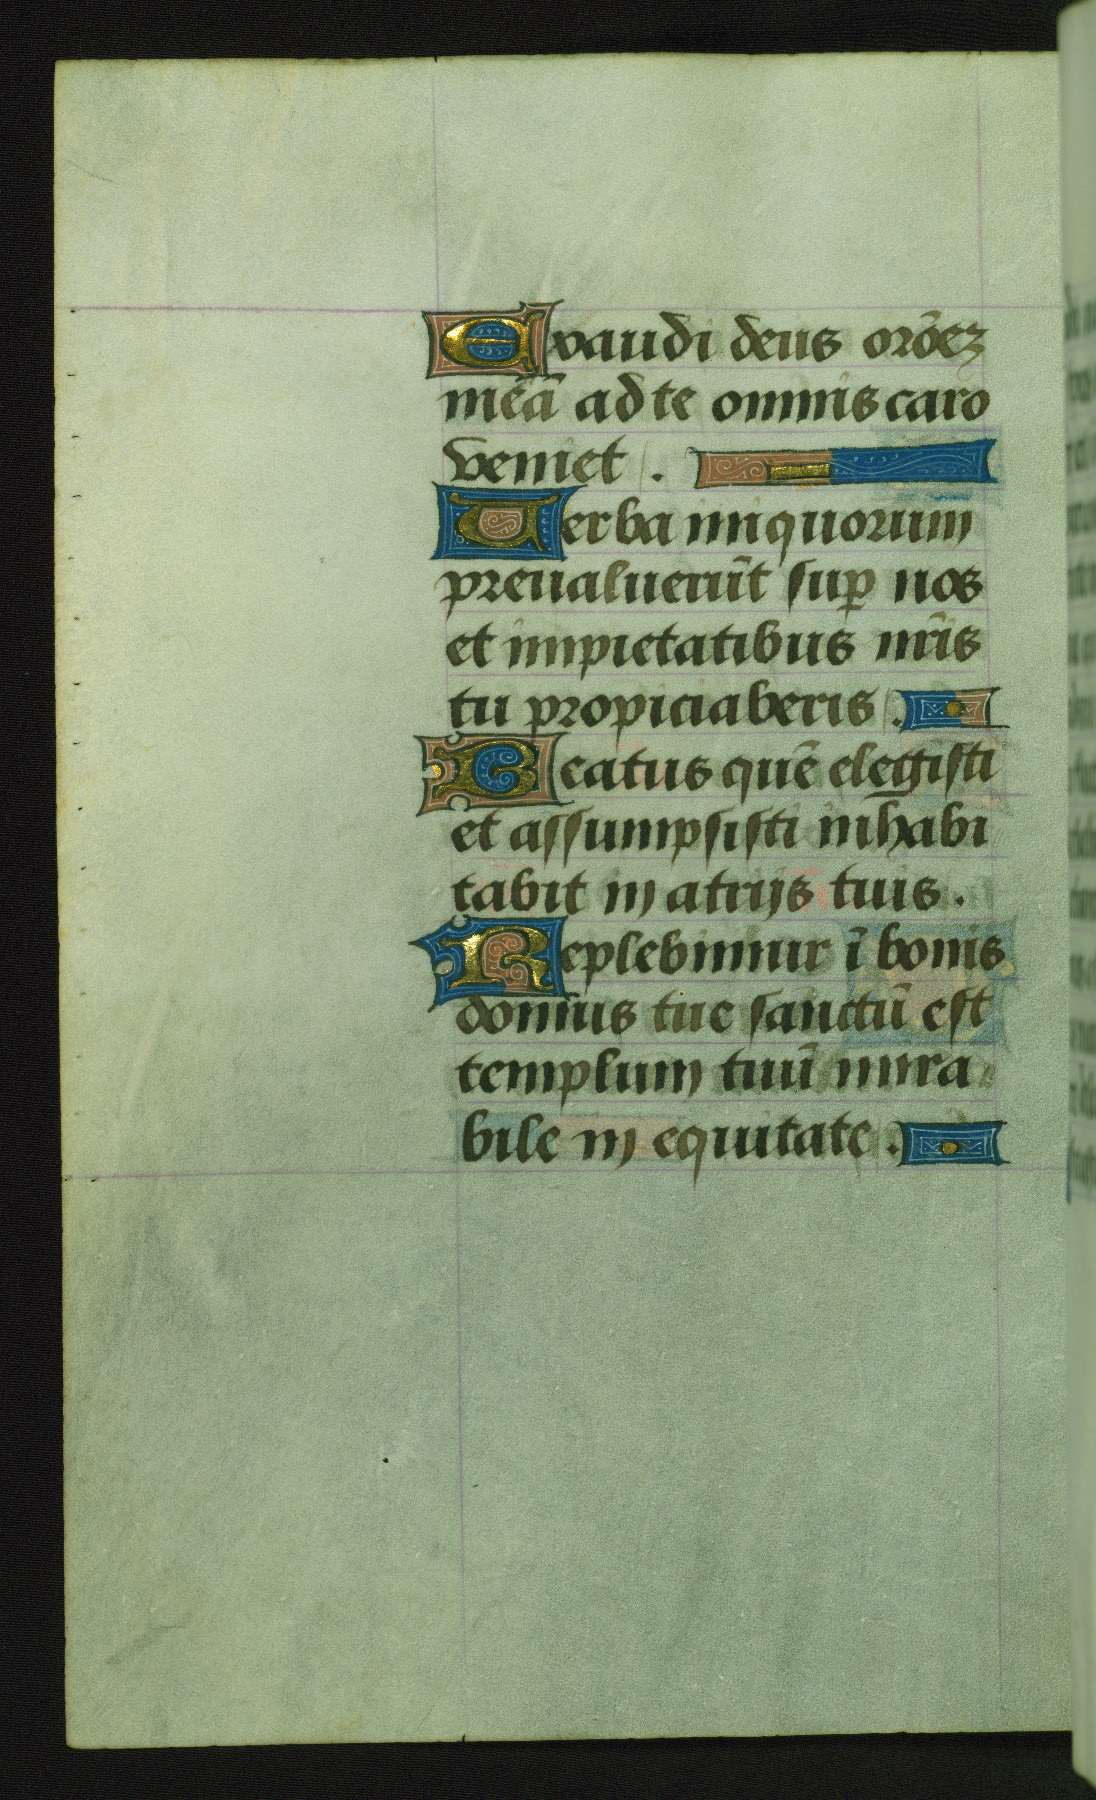 Exaudi deus orōez
mēā ad te omnis caro
veniet .
Uerba iniquorum
preualuerūt sup̱ nos
et impietatibus nr̄is
tu propiciaberis .
Beatus quē elegisti
et assumpsisti inhabi
tabit in atrijs tuis .
Replebimur ī bonis
domus tue sanctū est
templum tuū mira
bile in equitate .